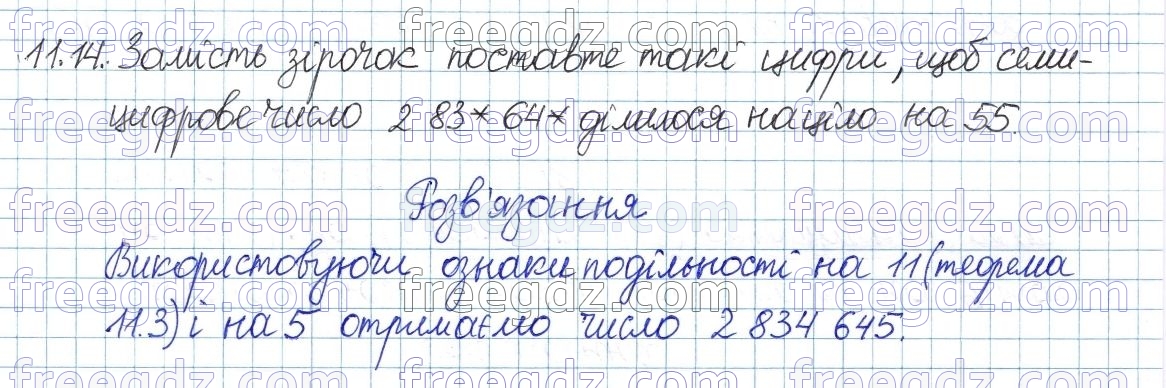 11.14. Замість зірочок поставте такі цифри, щоб семи-
цифрове число 2 83* 64* ділилося націло на 55.
Розв'язання
Використовуючи ознаки подільності на 11 (теорема
11.3) і на 5 отримаємо число 2 834 645.
freegdz.com